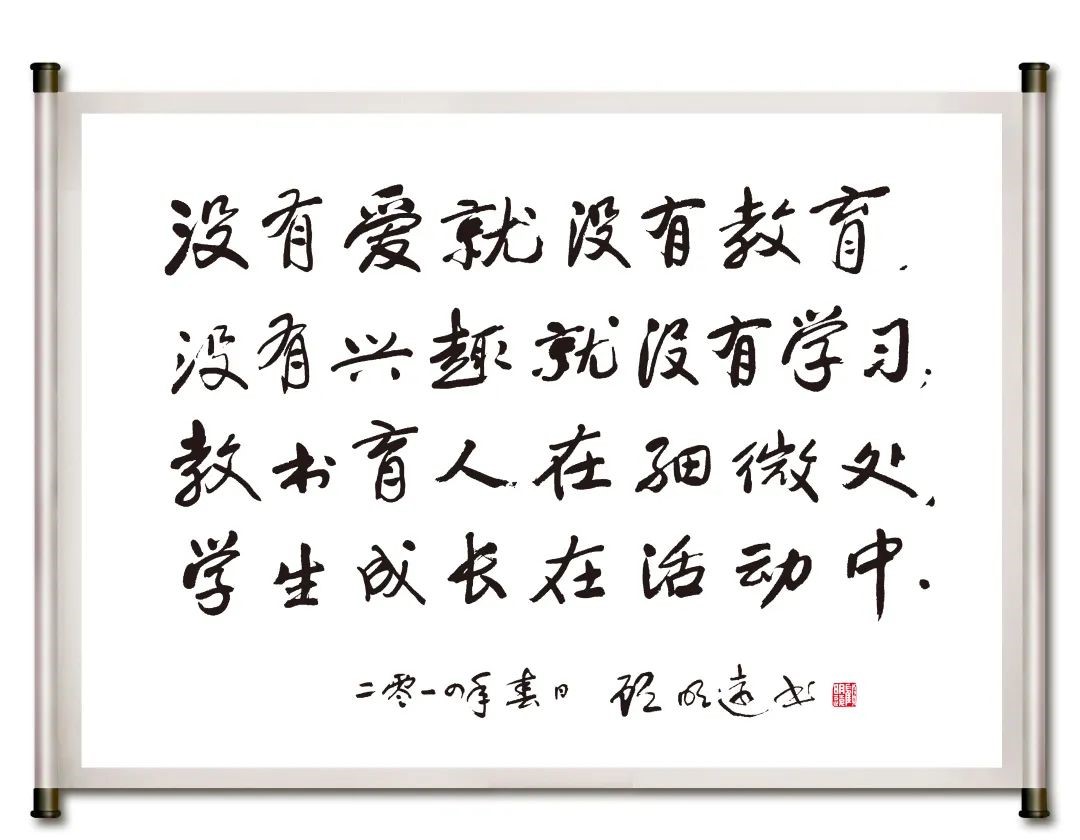 没有爱就没有教育.
没有兴趣就没有学习;
教书育人在细微处,
学生成长在活动中.
二零一四年春日 顾明远书